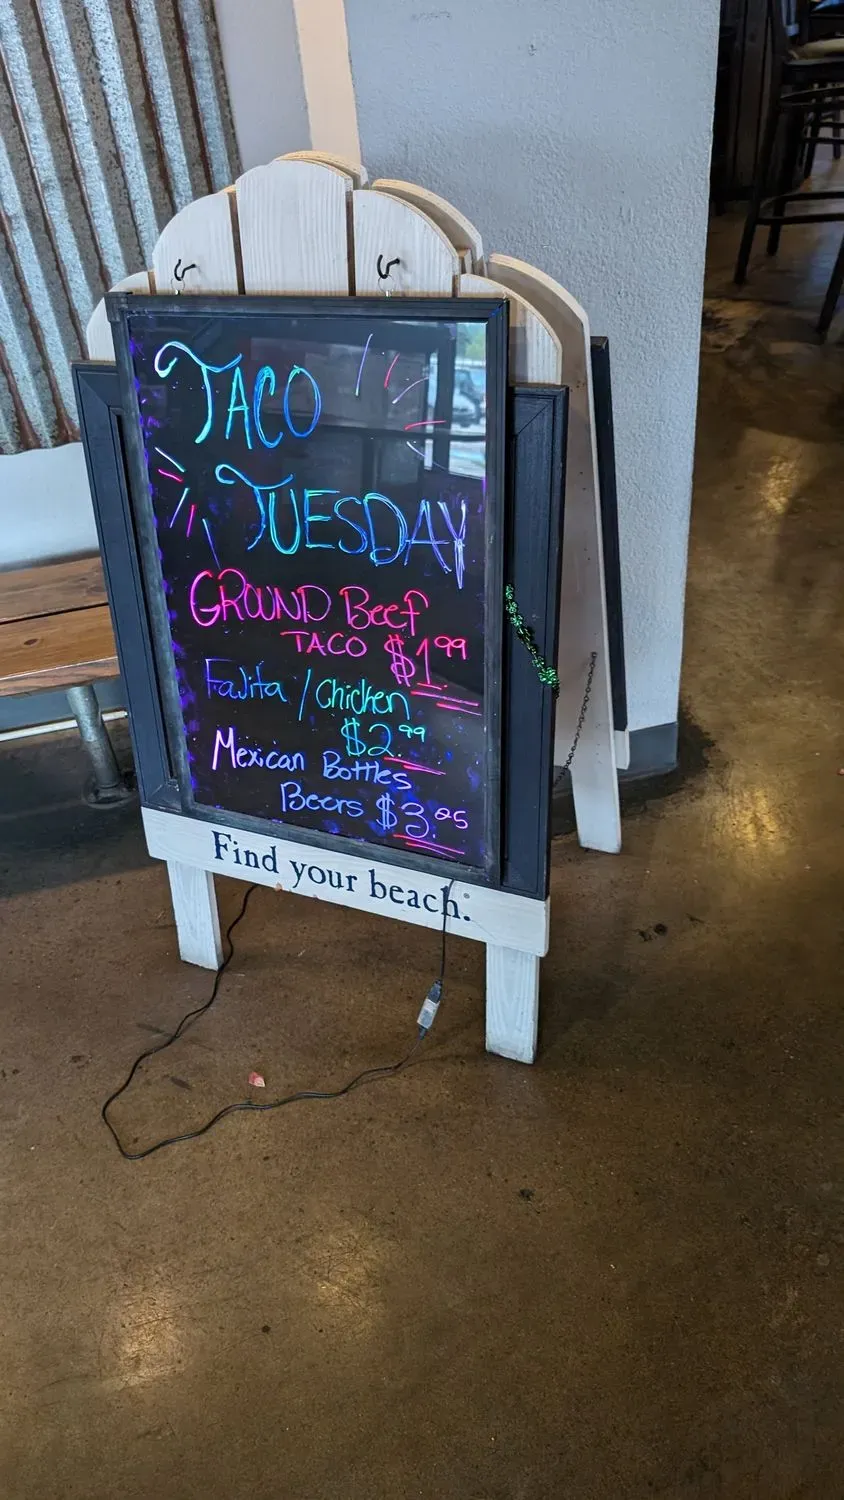 TACO
TUESDAY
GROUND Beef
TACO $1.99
Fajita / Chicken
$2.99
Mexican Bottles
Beers $3.25
Find your beach.